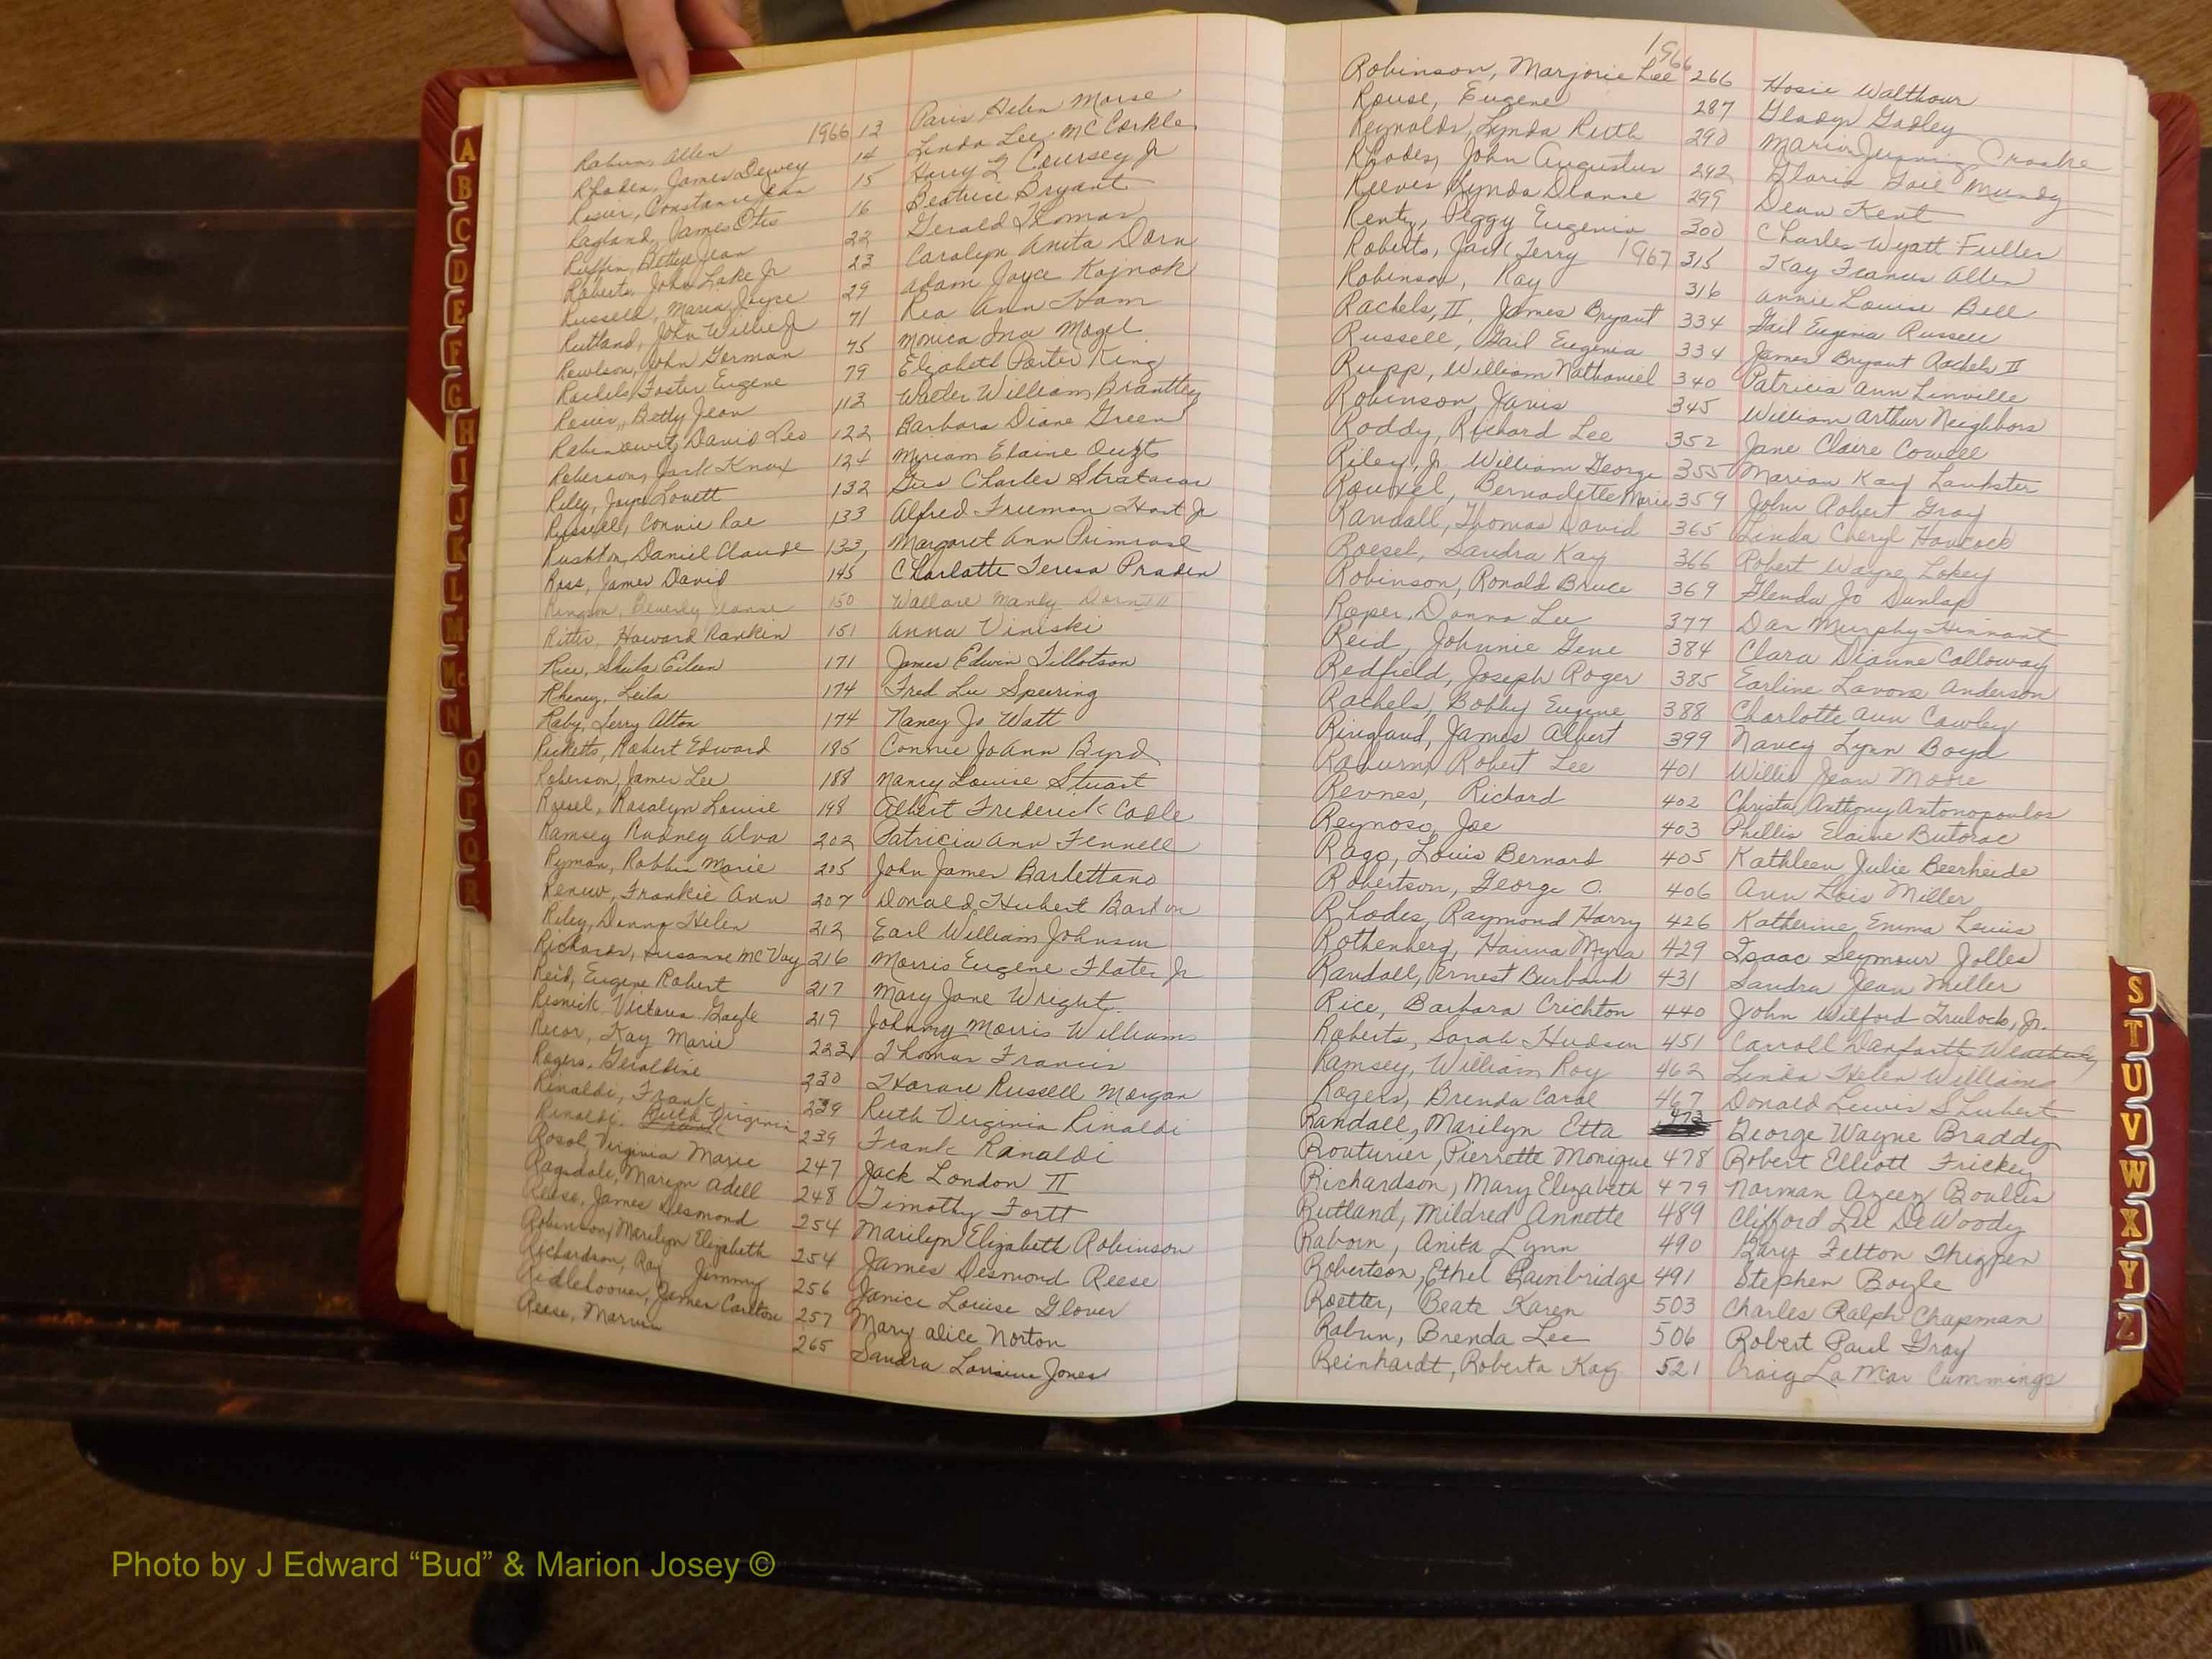 1966
Rabun, Allen 13 Paris Helen Morse
Rhoden, James Dewey 14 Linda Lee McCorkle
Rosier, Constance Jean 15 Harry L Coursey Jr
Ragland, James Otis 16 Beatrice Bryant
Ruffin, Bettye Jean 22 Gerald Thomas
Roberts, John Lake Jr 23 Carolyn Anita Dorn
Russell, Maria Joyce 29 Adam Joyce Kajnok
Rutland, John Willie Jr 71 Rea Ann Ham
Rewlson, John Gorman 75 Monica Ina Magel
Rachels, Foster Eugene 79 Elizabeth Porter King
Rosier, Betty Jean 112 Walter William Brantley
Rabinowitz, David Leo 122 Barbara Diane Green
Roberson, Jack Knox 124 Myriam Elaine Ouzts
Riley, Joyce Lovett 132 Gus Charles
Russell, Connie Rae 133 Alfred Freeman Hart Jr
Rushton, Daniel Claude 133 Margaret Ann Primrose
Ross, James David 145 Charlotte Teresa Praden
Ringson, Beverly Jeanne 150 Wallace Manly Dorn III
Ritter, Howard Rankin 151 Anna Viniski
Rice, Shula Eileen 171 James Edwin Tillotson
Rheney, Leila 174 Fred Lee Speering
Raby, Terry Alton 174 Nancy Jo Watt
Ricketts, Robert Edward 185 Connie JoAnn Byrd
Roberson, James Lee 188 Nancy Louise Stuart
Roesel, Rosalyn Louise 198 Albert Frederick Cable
Ramsey Rodney Alva 202 Patricia Ann Fennell
Ryman, Robbin Marie 205 John James Barlettano
Renew, Frankie Ann 207 Donald Hubert Barton
Riley, Donna Helen 212 Earl William Johnson
Richards, Susanne McVay 216 Morris Eugene Flater Jr
Reid, Eugene Robert 217 Mary Jane Wright
Resnick Victoria Gayle 219 Johnny Morris Williams
Recor, Kay Marie 223 Thomas Francis
Rogers, Geraldine 230 Horace Russell Morgan
Rinaldi, Frank 239 Ruth Virginia Rinaldi
Rinaldi, Ruth Virginia 239 Frank Ranaldi
Rosol, Virginia Marie 247 Jack London II
Ragsdale, Marion Adell 248 Timothy Fortt
Reese, James Desmond 254 Marilyn Elizabeth Robinson
Robinson, Marilyn Elizabeth 254 James Desmond Reese
Richardson, Ray Jimmy 256 Janice Louise Glover
Ridlehoover, James Carlton 257 Mary Alice Norton
Reese, Marvin 265 Sandra Lorraine Jones
1966
Robinson, Marjorie Lee 266 Hosie Walthour
Rouse, Eugene 287 Gladys Gadley
Reynolds, Lynda Ruth 290 Marion Crooke
Rhodes, John Augustus 292 Gloria Gail Mundy
Reeves Lynda Dianne 299 Dean Kent
Rentz, Peggy Eugenia 300 Charles Wyatt Fuller
Roberts, Jack Terry 1967 315 Kay Frances Allen
Robinson, Ray 316 Annie Louise Bell
Rachels, II, James Bryant 334 Gail Eugenia Russell
Russell, Gail Eugenia 334 James Bryant Rachels II
Rupp, William Nathaniel 340 Patricia Ann Linville
Robinson, Javis 345 William Arthur Neighbors
Roddy, Richard Lee 352 Jane Claire Cowell
Riley, Jr William George 355 Marion Kay Lankster
Rouxel, Bernadette Marie 359 John Robert Gray
Randall, Thomas David 365 Linda Cheryl Hancock
Roesel, Sandra Kay 366 Robert Wayne Lokey
Robinson, Ronald Bruce 369 Glenda Jo Dunlap
Roper, Donna Lee 377 Dan Murphy Hinnant
Reid, Johnnie Gene 384 Clara Dianne Calloway
Redfield, Joseph Roger 385 Earline Lavona Anderson
Rachels, Bobby Eugene 388 Charlotte Ann Cawley
Ringland, James Albert 399 Nancy Lynn Boyd
Raburn, Robert Lee 401 Willie Jean Moore
Revnes, Richard 402 Christa Anthony Antonopoulos
Reynoso, Joe 403 Phillis Elaine Butorac
Rago, Louis Bernard 405 Kathleen Julie Beerheide
Robertson, George O. 406 Ann Lois Miller
Rhodes, Raymond Harry 426 Katherine Emma Lewis
Rothenberg, Hanna Myra 429 Isaac Seymour Jolles
Randall, Ernest Burband 431 Sandra Jean Miller
Rice, Barbara Crichton 440 John Wilford Trulock, Jr.
Roberts, Sarah Hudson 451 Carroll Danforth Weatherly
Ramsey, William Roy 462 Linda Helen Williams
Rogers, Brenda Carol 467 Donald Lewis Shubert
Randall, Marilyn Etta 473 George Wayne Braddy
Routurier, Pierrette Monique 478 Robert Elliott Frickey
Richardson, Mary Elizabeth 479 Norman Azeez Boulles
Rutland, Mildred Annette 489 Clifford Lee DeWoody
Raborn, Anita Lynn 490 Gary Felton Thigpen
Robertson, Ethel Bainbridge 491 Stephen Boyle
Roetter, Beate Karen 503 Charles Ralph Chapman
Rabun, Brenda Lee 506 Robert Paul Gray
Reinhardt, Roberta Kay 521 Craig La Mar Cummings
A
B
C
D
E
F
G
H
I
J
K
L
M
Mc
N
O
P
Q
R
S
T
U
V
W
X
Y
Z
Photo by J Edward “Bud” & Marion Josey ©